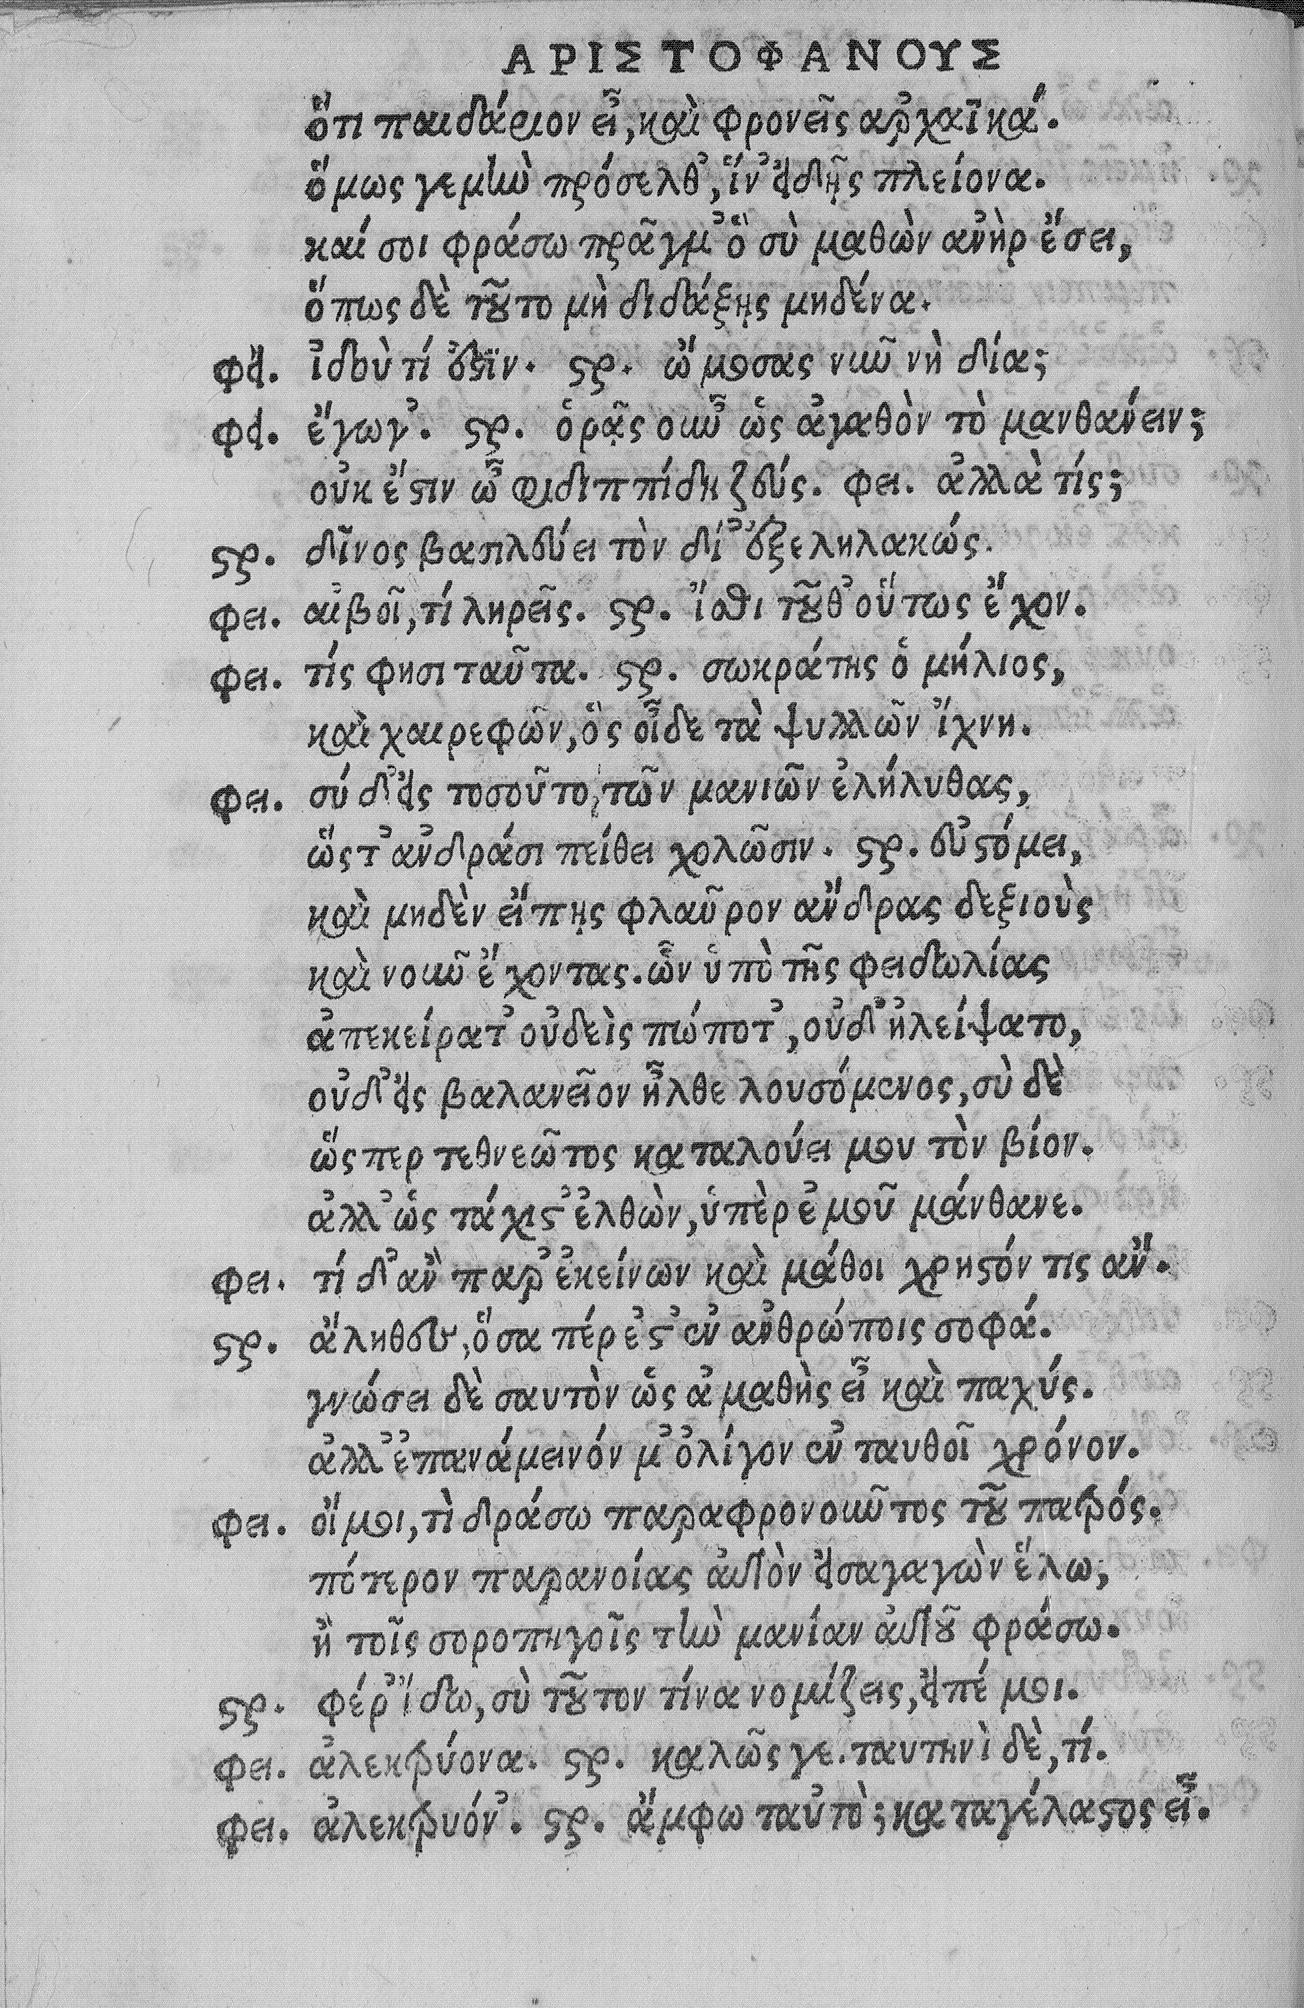 ΑΡΙΣΤΟΦΑΝΟΥΣ
ὅτι παιδάριον εἶ, καὶ φρονεῖς αρχαϊκά.
ὅμως γεμὴν πρόσελθ', ἵν' εἰδῇς πλείονα.
καί σοι φράσω πρᾶγμ' ὃ σὺ μαθὼν ἀνὴρ ἔσει,
ὅπως δὲ τοῦτο μὴ διδάξῃς μηδένα.
φει. ἰδοὺ τί ἐστιν. στρ. ὤμοσας νυῦ νὴ δία;
φει. ἔγωγ'. στρ. ὁρᾷς οὖν ὡς ἀγαθὸν τὸ μανθάνειν;
οὐκ ἔστιν ὦ φιδιππίδη ζεύς. φει. ἀλλὰ τίς;
στρ. δῖνος βασιλεύει τὸν δί' ἐξεληλακώς.
φει. αἰβοῖ, τί ληρεῖς. στρ. ἴσθι τοῦθ' οὕτως ἔχον.
φει. τίς φησι ταῦτα. στρ. σωκράτης ὁ μήλιος,
καὶ χαιρεφῶν, ὃς οἶδε τὰ ψυλλῶν ἴχνη.
φει. σύ δ' εἰς τοσοῦτο τῶν μανιῶν ἐλήλυθας,
ὥστ' ἀνδράσι πείθει χολῶσιν. στρ. εὐστόμει,
καὶ μηδὲν εἴπῃς φλαῦρον ἄνδρας δεξιοὺς
καὶ νοῦν ἔχοντας. ὧν ὑπὸ τῆς φειδωλίας
ἀπεκείρατ' οὐδεὶς πώποτ', οὐδ' ἠλείψατο,
οὐδ' εἰς βαλανεῖον ἦλθε λουσόμενος, σὺ δὲ
ὥσπερ τεθνεῶτος καταλούει μου τὸν βίον.
ἀλλ' ὡς τάχιστ' ἐλθὼν, ὑπὲρ ἐμοῦ μάνθανε.
φει. τί δ' ἂν παρ' ἐκείνων καὶ μάθοι χρηστόν τις ἄν.
στρ. ἄληθες, ὅσα πέρ ἐστ' ἐν ἀνθρώποις σοφά.
γνώσει δὲ σαυτὸν ὡς ἀμαθὴς εἶ καὶ παχύς.
ἀλλ' ἐπανάμεινόν μ' ὀλίγον ἐνταυθοῖ χρόνον.
φει. οἴμοι, τὶ δράσω παραφρονοῦντος τοῦ πατρός.
πότερον παρανοίας αὐτὸν εἰσαγαγὼν ἕλω,
ἢ τοῖς σοροπηγοῖς τὴν μανίαν αὐτοῦ φράσω.
στρ. φέρ' ἴδω, σὺ τοῦτον τίνα νομίζεις, εἰπέ μοι.
φει. ἀλεκτρύονα. στρ. καλῶς γε. ταυτηνὶ δὲ, τί.
φει. ἀλεκτρυόν'. στρ. ἄμφω ταὐτό; καταγέλαστος εἶ.